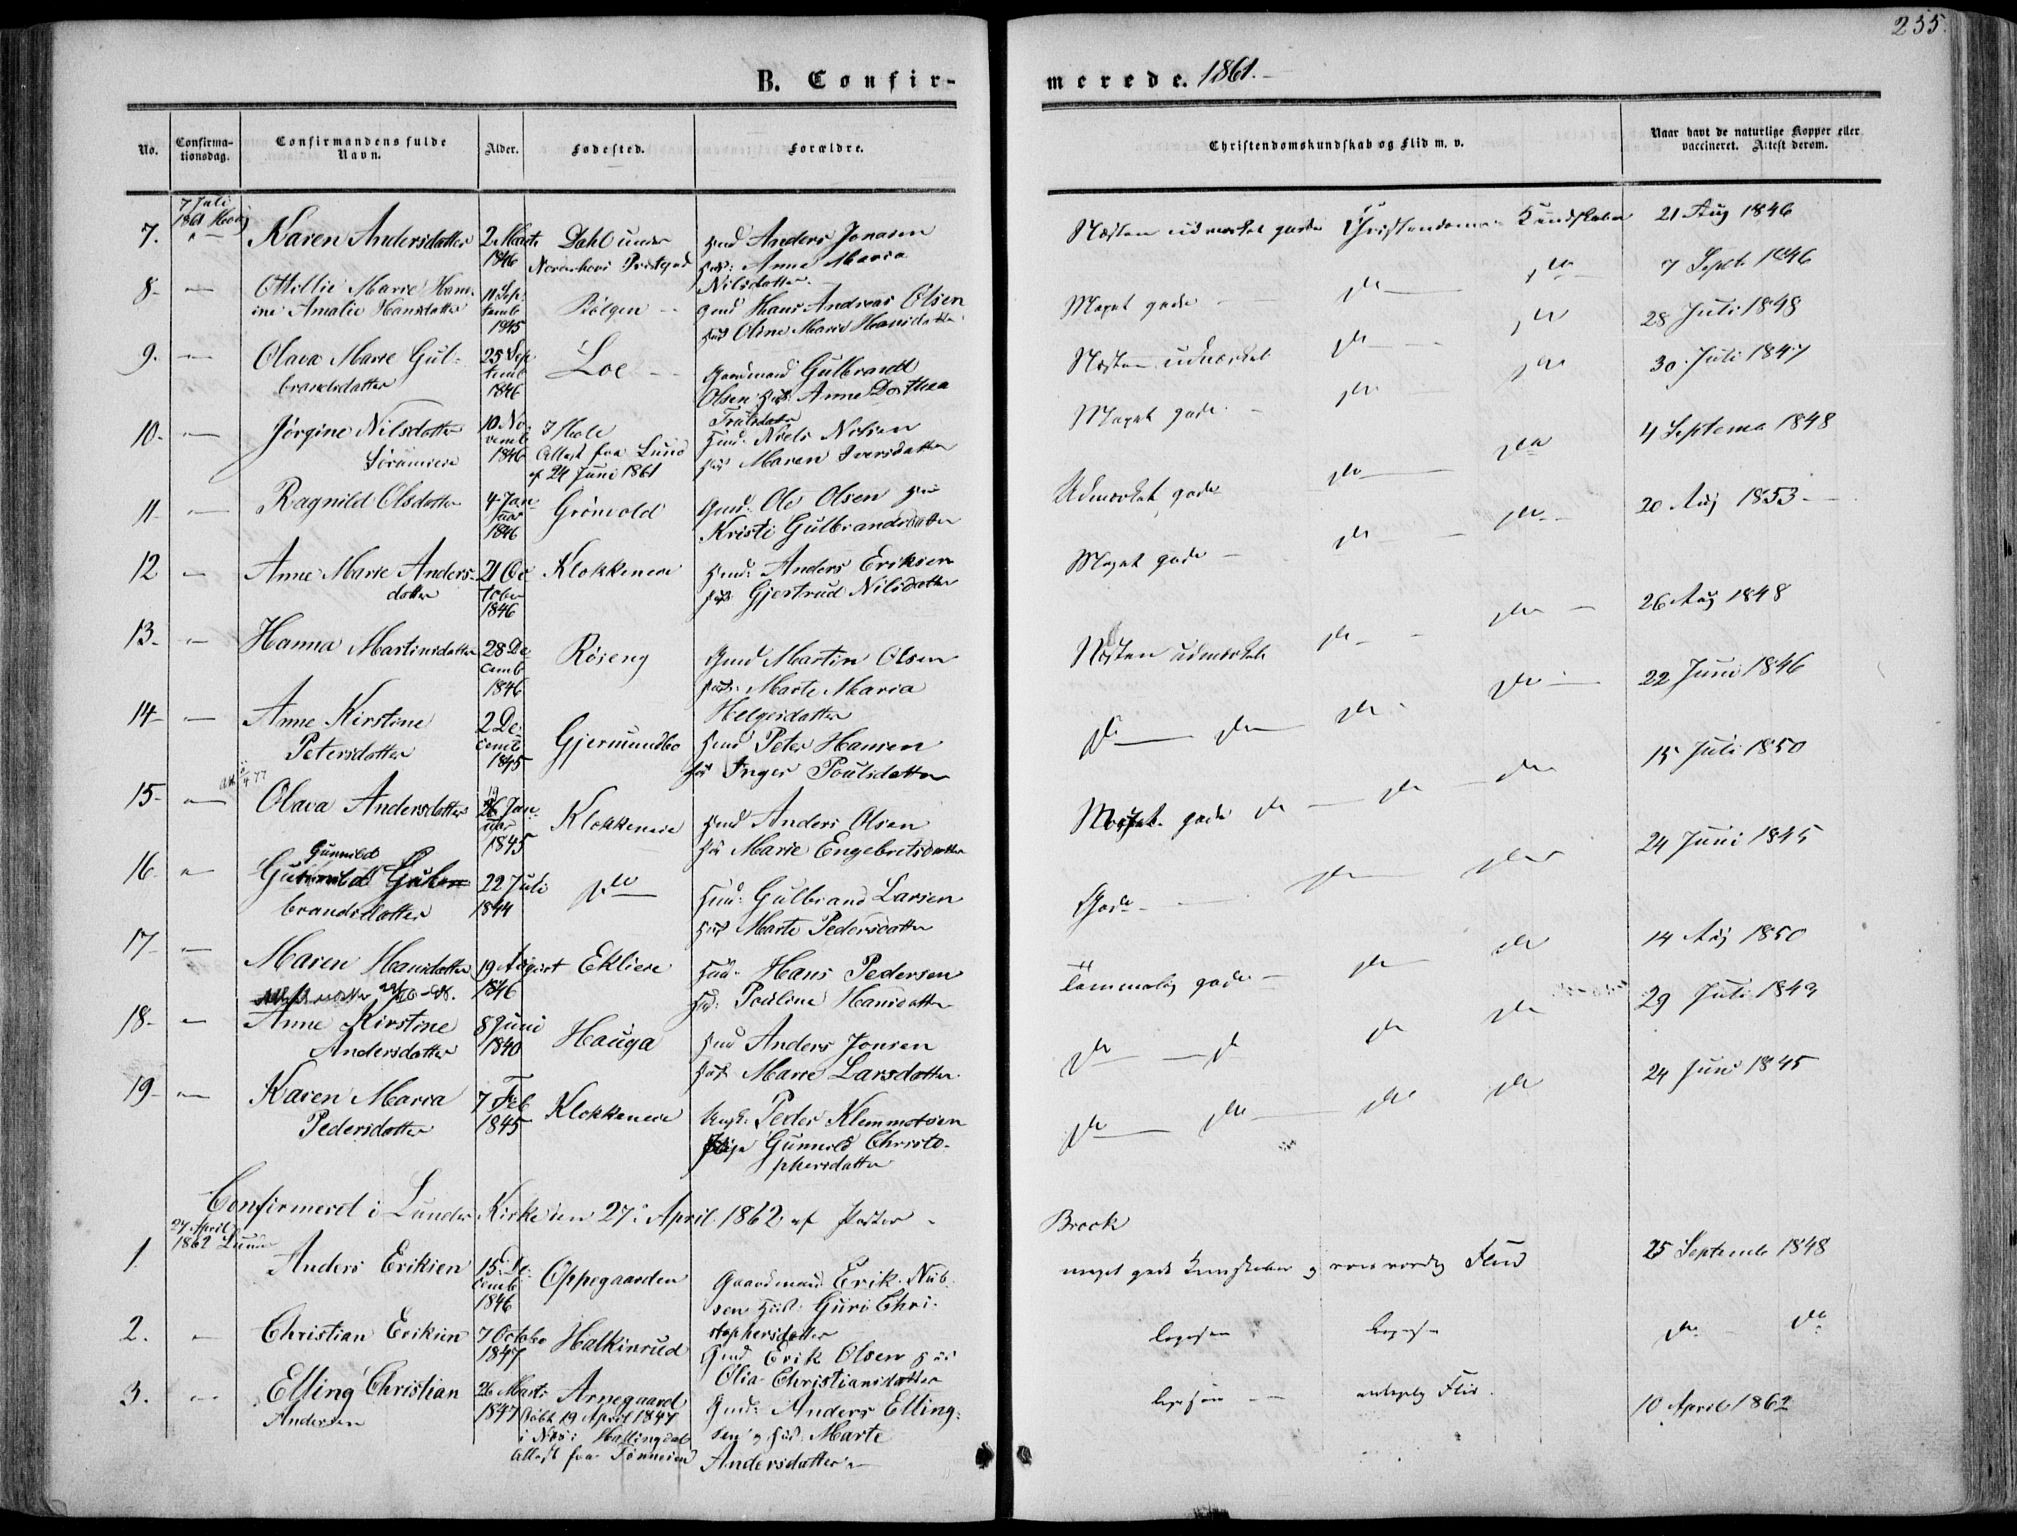 255.
B. Confir-
merede. 1861.-
No.
Confirma-
tionsdag.
Confirmandens fulde
Navn.
Alder.
Fødested.
Forældre.
Christendomskundskab og Flid m. v.
Naar havt de naturlige Kopper eller
vaccineret. Attest derom.
7 Juli
1861
7. Karen Andersdatter 2 Marts 1846 Dahl under
Anders Jonasen
Anne Maria
Nilsdatter
Næsten udmærket gode Christendoms Kundskaber 21 Aug 1846
8. Ottillie Marie Han-
ine Amalie Hansdatter 11 Sep-
temb
1845 Bølgen
Gmd Hans Andreas Olsen
Oline Marie Hansdatter
Meget gode do do 7 Septb 1846
9. Olava Marie Gul-
brandsdatter 25 Sep-
temb
1846 Loe
Gaardmand Gulbrand
Olsen Anne Dorthea
Trulsdatter
Næsten udmærket do do 28 Juli 1848
10. Jørgine Nilsdatter
10 No-
vemb
1846 Attest fra Lund
af 24 Juni 1861
Niels Nilsen
Maren Iversdatter
Meget gode do do 30 Juli 1847
11. Ragnild Olsdatter 4 Jan-
uar
1846 Grönvold
Gmd. Ole Olsen
Kristi Gulbrandsdatter
Udmærket gode do do 4 Septemb 1848
12 Anne Marie Anders-
datter 21 Oc-
tober
1846 Klokkereie
Anders Eriksen
Gjertrud Nilsdatter
Meget gode do do 20 Aug 1853
13. Hanna Martinsdatter 28 De-
cemb
1846 Røseng
Gmd Martin Olsen
Marte Maria
Helgesdatter
Næsten udmærket do do 26 Aug 1848
14. Anne Kirstine
Petersdatter 2 De-
cemb
1845 Gjermundbo
Peter Hansen
Inger Poulsdatter
do do do do 22 Juni 1846
15. Olava Andersdatter 26 Jan-
uar
1845 Klokkereie
Anders Olsen
Marie Engebretsdatter
Meget gode do do do 15 Juli 1850
16. Gunnild
brandsdatter 22 Juli
1844 do
Gulbrand Larsen
Marte Pedersdatter
Gode do do 24 Juni 1845
17. Maren Hansdatter 19 August
1846 Ekliere
Hans Pedersen
Pouline Hansdatter
Temmelig gode do do 14 Aug 1850
18. Anne Kirstine
Andersdatter 8 Juni
1840 Hauga
Anders Jonsen
Marie Larsdatter
do do do do 29 Juli 1849
19. Karen Maria
Pedersdatter 7 Feb
1845 Klokkereie
Peder Klemmetsen
Gunnild Christo-
phersdatter
do do do do 24 Juni 1845
Confirmeret i Lunder Kirke den 27de April 1862 af Pastor Brock
27 April
1862 Lunder
1 Anders Eriksen 15 De-
cemb
1846 Oppegaarden
Gaardmand Erik Nils-
sen Guri Chri-
stophersdatter
meget gode Kundskaber og Flid 25 Septemb 1848
2. Christian Eriksen 7 October
1847 Halkinrud
Gmd Erik Olsen
Olia Christiansdatter
do do
3. Elling Christian
Andersen 26 Marts
1847 Arnegaard
døbt 19 April 1847
i Næs i Hallingdal
Attest fra
Gmd. Anders Elling-
sen og Marte
Andersdatter
Flid 10 April 1862